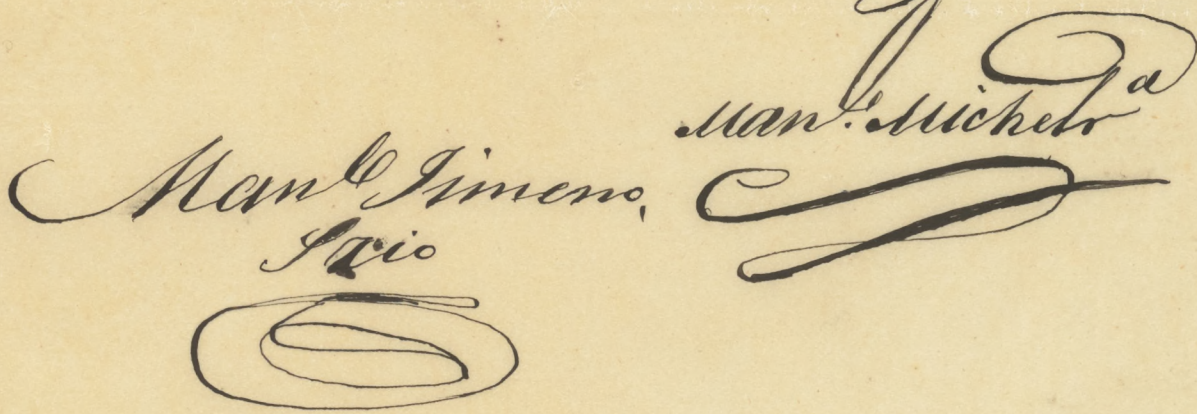 Man.l Michelt.a
Man.l Jimeno,
Srio